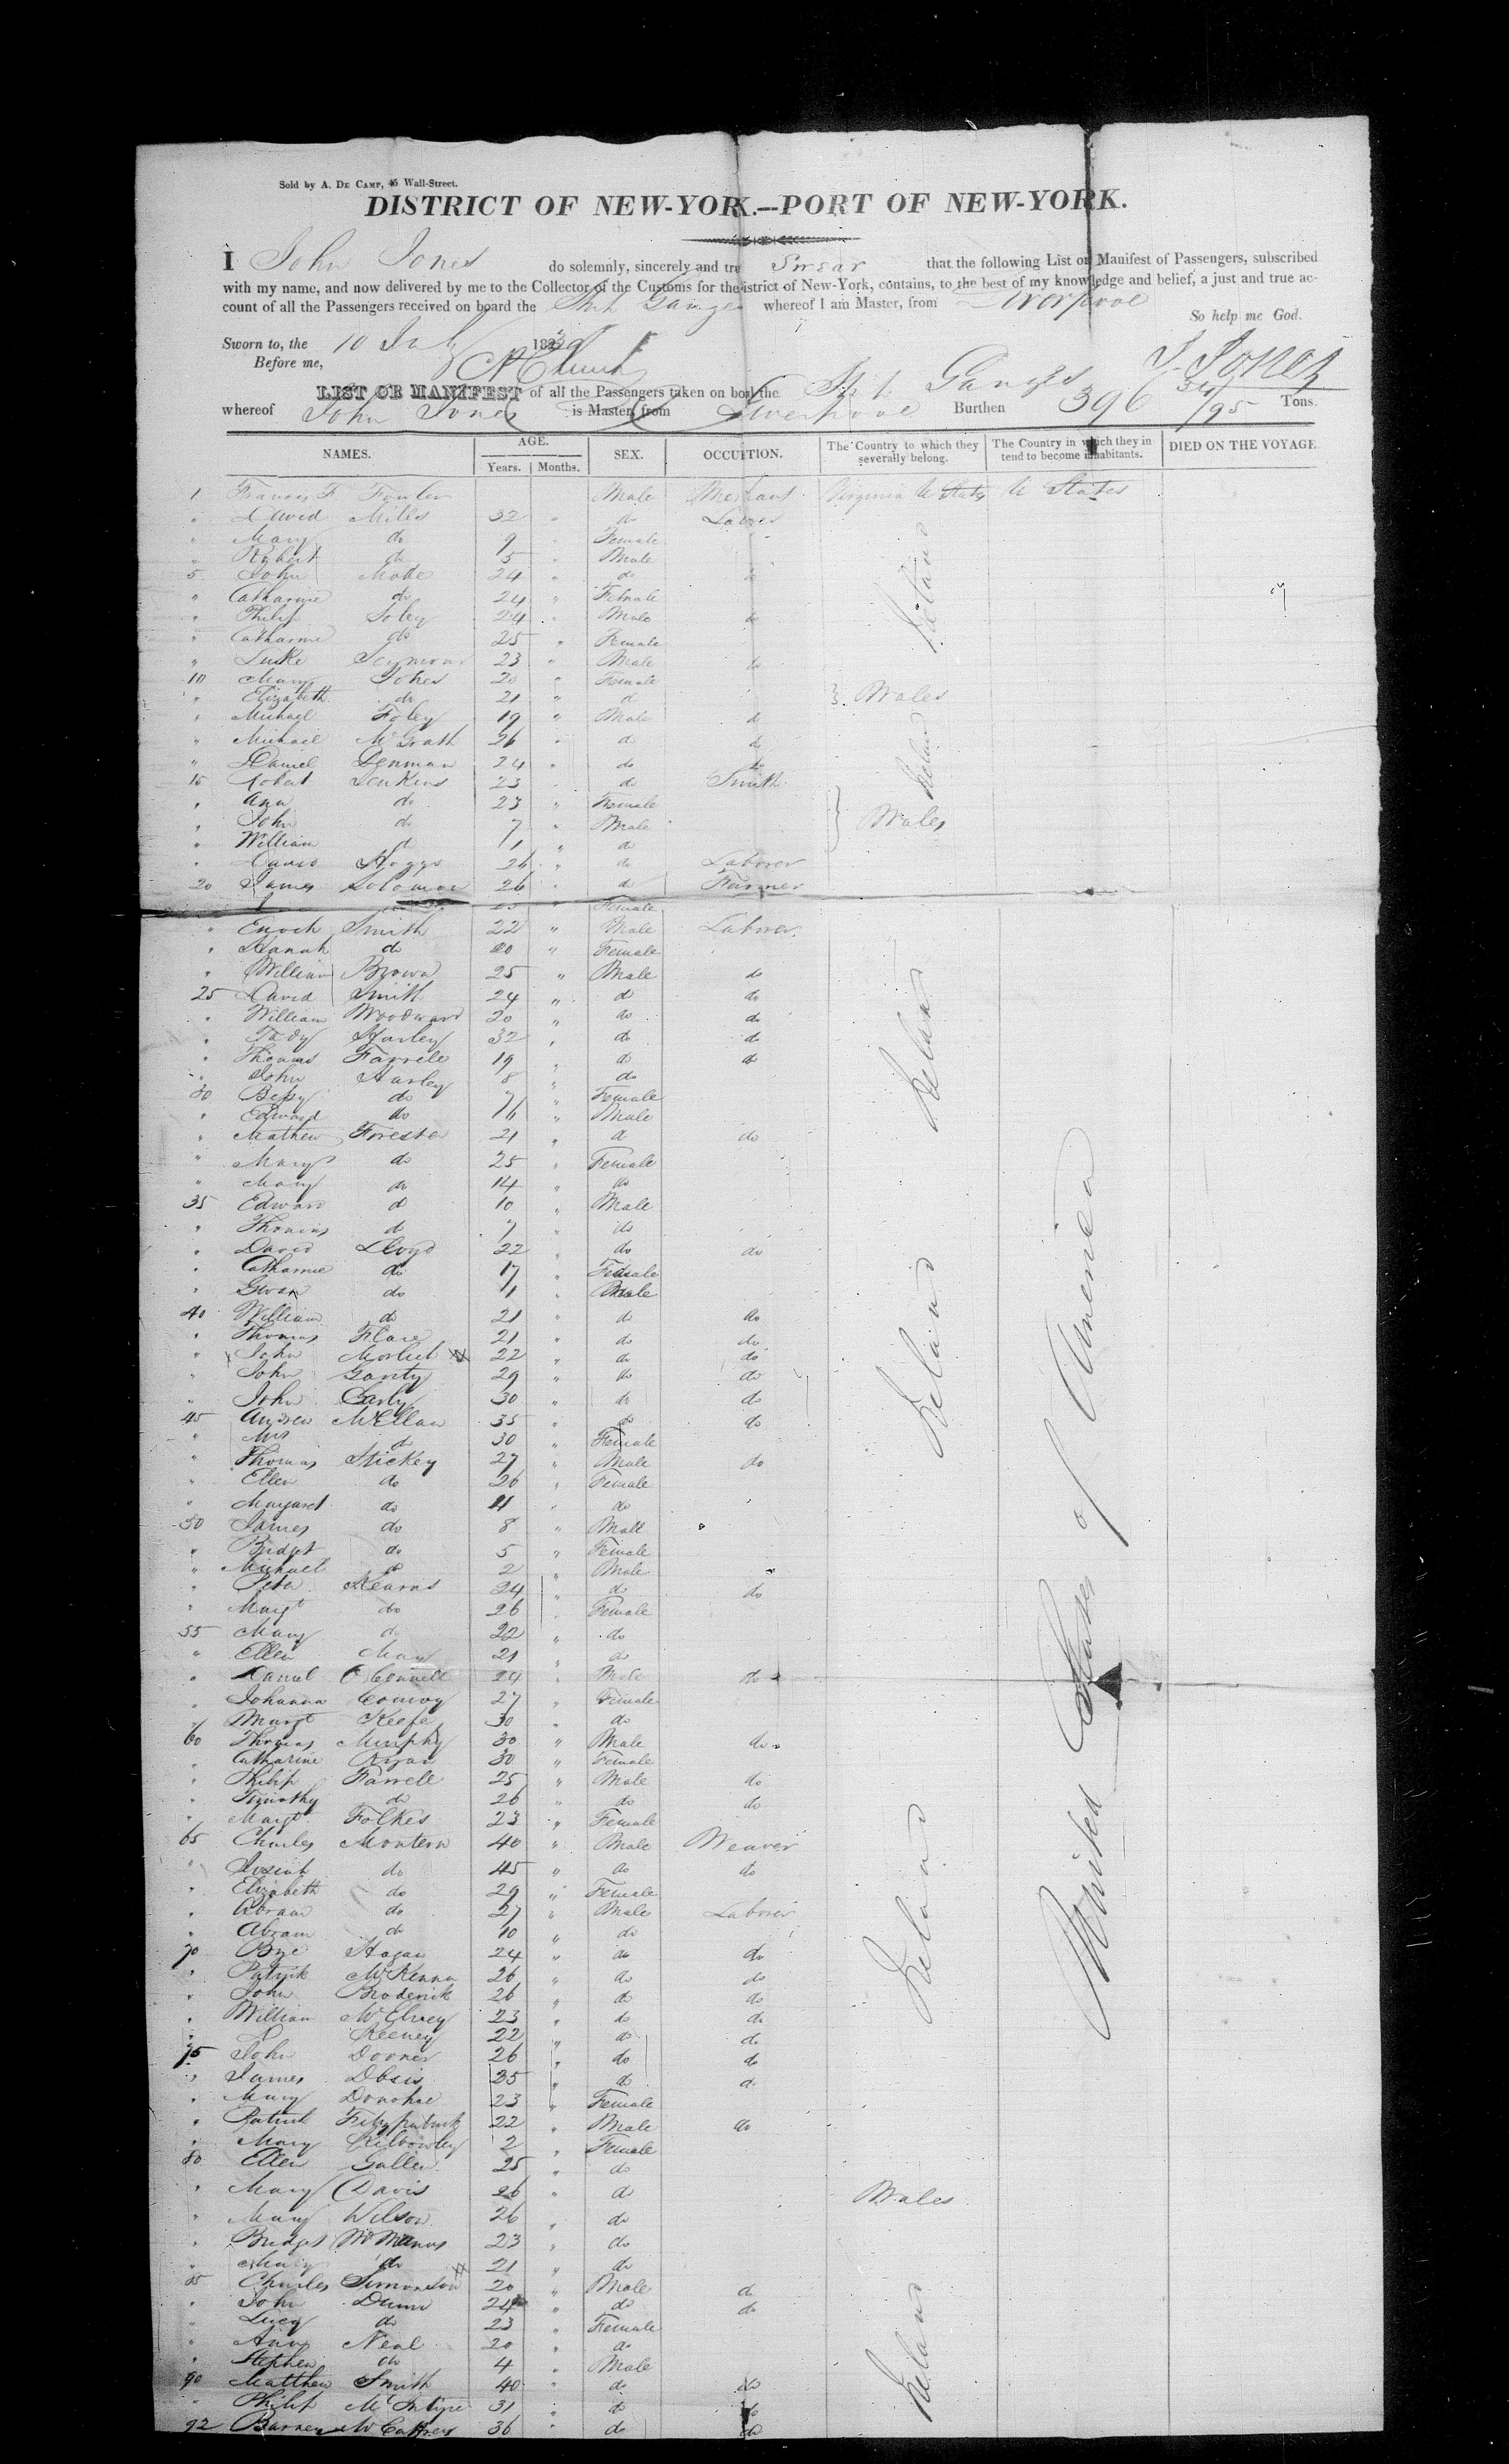 Sold by A. DE CAMP, 45 Wall-Street.
DISTRICT OF NEW-YORK.--PORT OF NEW-YORK.
I John Jones do solemnly, sincerely and tru Swear that the following List or Manifest of Passengers, subscribed
with my name, and now delivered by me to the Collector of the Customs for the istrict of New-York, contains, to the best of my knowledge and belief, a just and true ac-
count of all the Passengers received on board the Ship Ganges whereof I am Master, from Liverpool
So help me God.
Sworn to, the 10 July 1829
Before me,
J. Jones
LIST OR MANIFEST of all the Passengers taken on board the Ship Ganges
whereof John Jones is Master, from Liverpool Burthen 396 34/95 Tons.
NAMES. AGE. SEX. OCCUTION. The Country to which they severally belong. The Country in which they intend to become inhabitants. DIED ON THE VOYAGE.
Years. Months.
1 Francis F Fowler Male Merchant Virginia U States U States
" David Mills 32 " do Laborer
" Mary do 9 " Female
" Robert do 5 " Male
5 John Mode 24 " do do
" Catharine do 24 " Female
" Philip Foley 24 " Male do
" Catharine do 25 " Female
" Luke Seymour 23 " Male do
10 Mary Jones 20 " Female
" Elizabeth do 21 " d } Wales
" Michael Foley 19 " Male d
" Michael McGrath 26 " d do
" Daniel Denman 24 " do do
15 Robert Jenkins 23 " do Smith
" Ann do 23 " Female
" John do 7 " Male } Wales
" William d 1 " d
" David Hoggs 26 " d Laborer
20 James Solomon 26 " d Farmer
" Female
" Enoch Smith 22 " Male Laborer
" Hanah do 20 " Female
" William Brown 25 " Male do
25 David Smith 24 " d do
" William Woodward 20 " do do
" Tady Harley 32 " do do
" Thomas Farrell 19 " d do
" John Harley 8 " do
30 Betsy do 7 " Female
" Edward do 16 " Male
" Mathew Forester 21 " d do
" Mary do 25 " Female
" Mary do 14 " do
35 Edward d 10 " Male
" Thomas do 7 " do
" David Lloyd 22 " do do
" Catharine do 17 " Female
" Gwen do 1 " Male
40 William do 21 " d do
" Thomas Flare 21 " do do
" John 22 " do do
" John Garity 29 " do do
" John Carly 30 " do do
45 Andrew McEllan 35 " do do
" Mrs d 30 " Female
" Thomas Hickey 27 " Male do
" Ellen do 26 " Female
" Margaret do 11 " do
50 James do 8 " Male
" Bridget do 5 " Female
" Michael do 2 " Male
" Peter Kearns 24 " d do
" Margt do 26 " Female
55 Mary d 22 " do
" Ellen May 21 " do
" Daniel O Connell 24 " Male do
" Johanna Conway 27 " Female
" Margt Keefe 30 " do
60 Thomas Murphy 30 " Male do
" Catharine Ryan 30 " Female
" Philip Farrell 25 " Male do
" Timothy do 26 " do do
" Margt Folkes 23 " Female
65 Charles Montern 40 " Male Weaver
" Josiah do 45 " do do
" Elizabeth do 29 " Female
" Abram do 27 " Male Laborer
" Abram do 10 " do
70 Hagan 24 " do do
" Patrick McKenna 26 " do do
" John Broderick 26 " do do
" William McElvey 23 " do do
" Keeney 22 " do do
75 John Dooner 26 " do do
" James 35 " do d
" Mary Donohue 23 " Female
" Patrick Fitzpatrick 22 " Male do
" Mary 2 " Female
80 Ellen Gallen 25 " do
" Mary Davis 26 " d Wales
" Mary Wilson 26 " do
" Bridget McManus 23 " do
" Mary do 21 " do
85 Charles Simonson 20 " Male d
" John Dunn 24 " do do
" Lucy do 23 " Female
" Ann Neal 20 " do
" Stephen do 4 " Male
90 Matthew Smith 40 " do do
" Philip McIntyre 31 " do do
92 Barney McCaffrey 36 " do do
Ireland
Ireland
Ireland
Ireland
Ireland
Ireland
United States of America